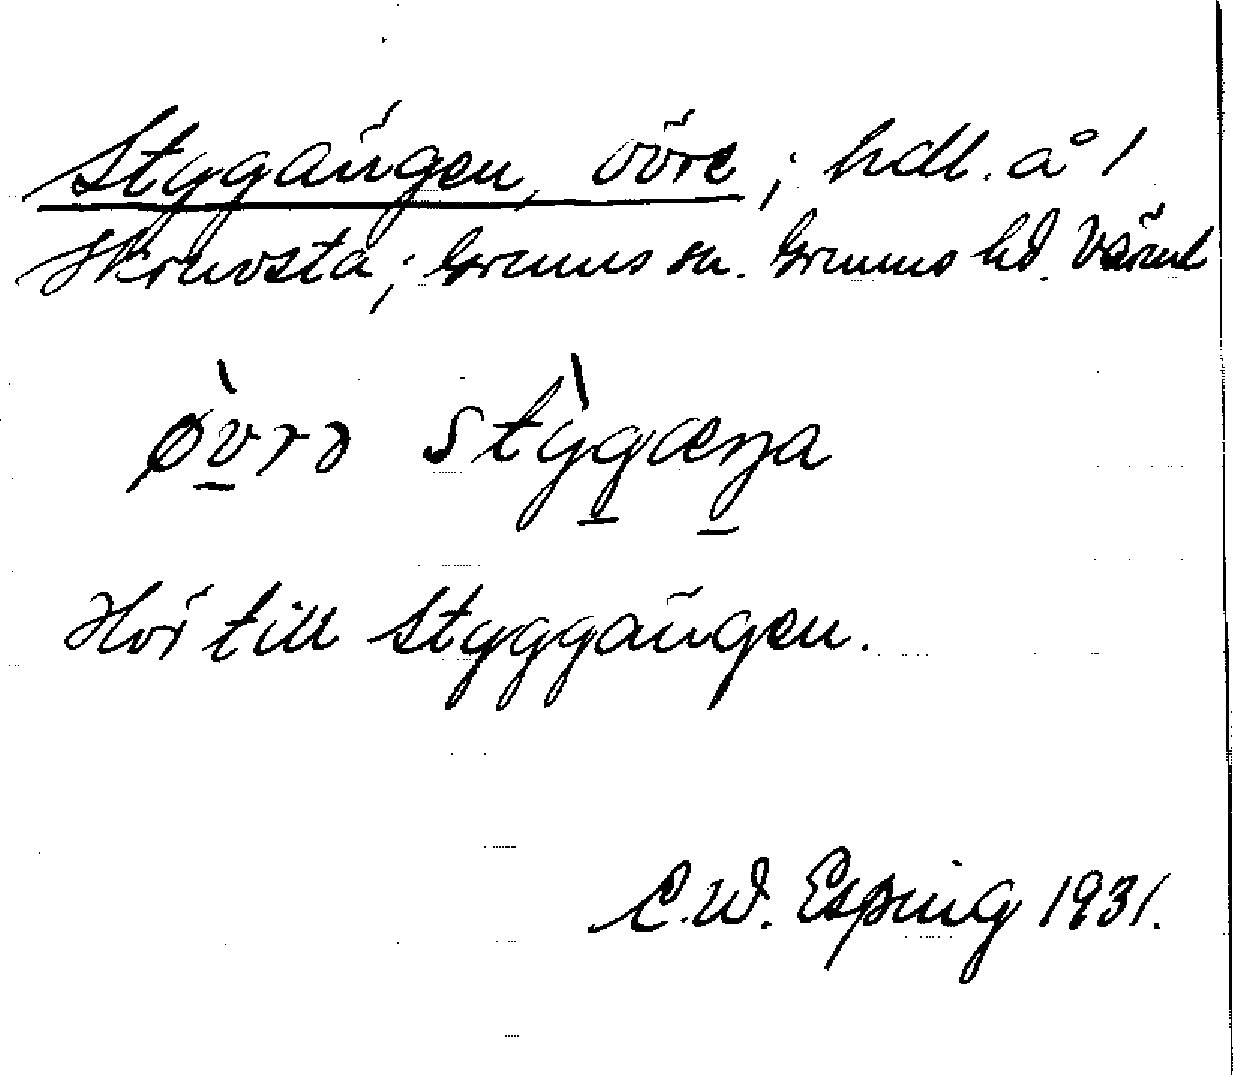 Stygängen, övre; hdl. å 1
Skruvsta; Grums sn. Grums hd. Värml
øvrə stygæŋa
Hör till Styggängen.
C.W. Esping 1931.